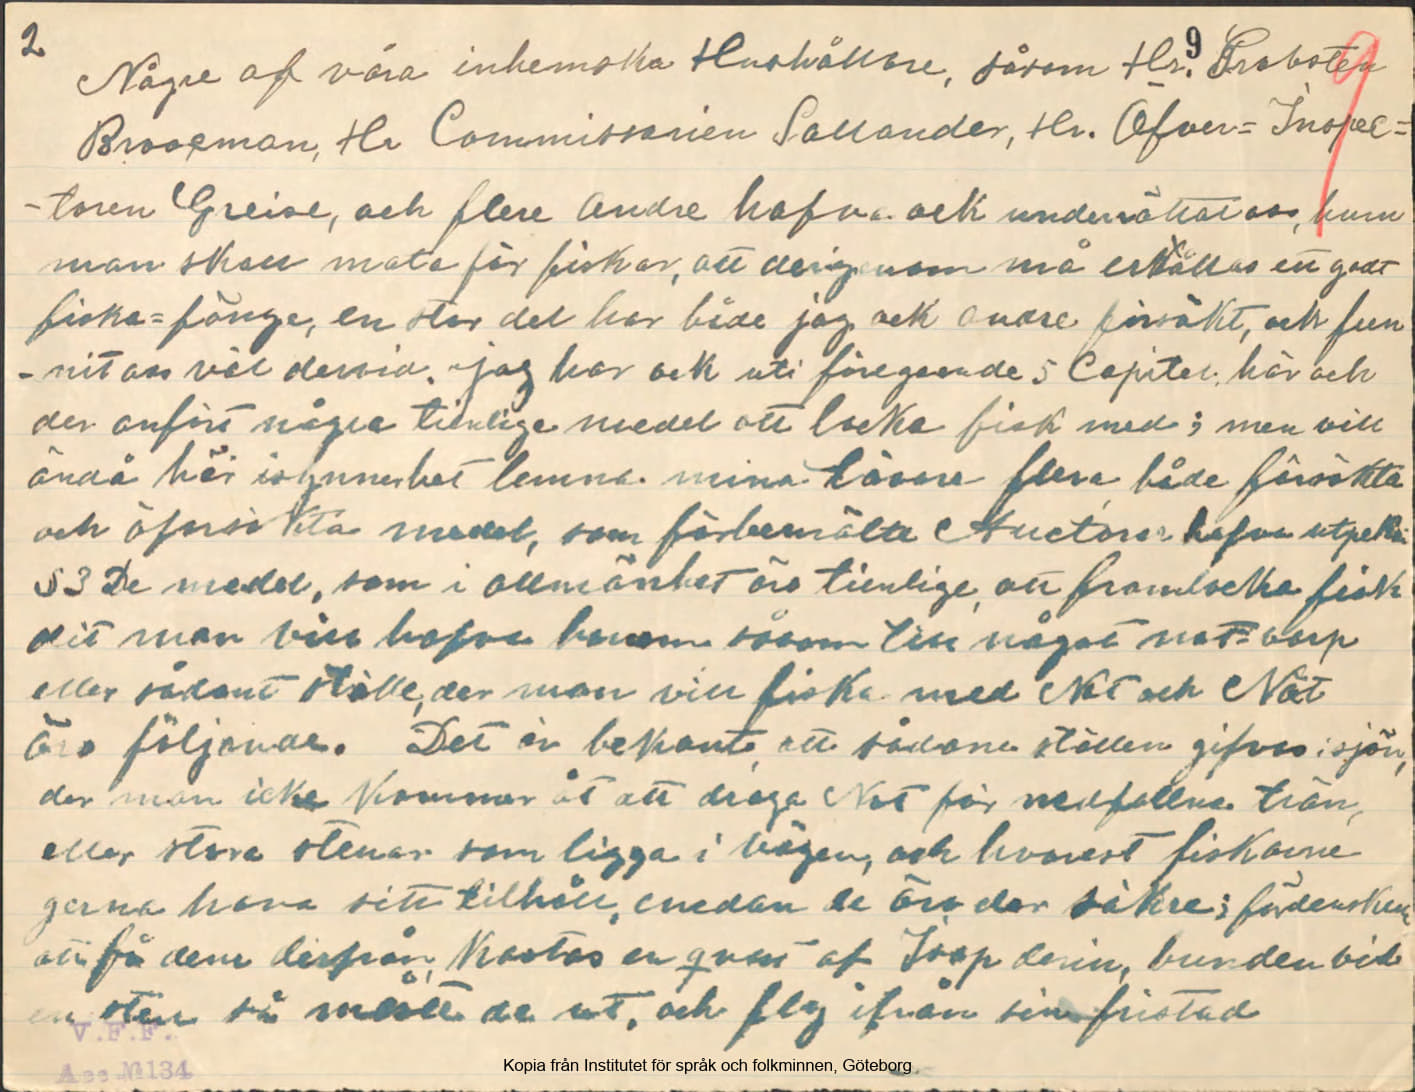 2
9
9
Någre af våra inhemska Hushållare, såsom Hr. Probsten
Brooeman, Hr Commissarien Salander, Hr. Öfver= Inspec=
-toren Greise, och flere andre hafva ock underrättat oss, huru
man skall mata för fiskar, att derigenom må erhållas ett godt
fiska=fänge, en stor del har både jag ock andre försökt, och fun
-nit oss väl dervid. jag har ock uti föregående 5 Capitel. här och
der anfört någre tienlige medel att locka fisk med; men vill
ändå här isynnerhet lemna mina Läsare flera både försökta
och oförsökta medel, som förbemälte Auctorer hafva utgett
§ 3 De medel, som i allmänhet äro tienlige, att framlocka fisk
dit man vill hafva honom såsom till något not=varp
eller sådant ställe, der man vill fiska med Not och Nät
äro följande. Det är bekant, att sådane ställen gifvas i sjön,
der man icke kommer åt att draga Not för nedfallne trän,
eller stora stenar som ligga i vägen, och hvarest fiskarne
gerna hava sitt tilhåll, emedan de äro der säkre; fördenskull
att få dem derifrån, kastas en qvast af Isop derin, bunden vid
en sten så måste de ut, och fly ifrån sin fristad
V.F.F.
Acc №134
Kopia från Institutet för språk och folkminnen, Göteborg